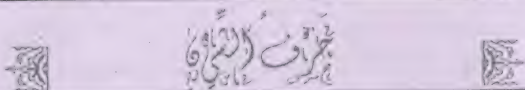 حَرفُ الشِّين